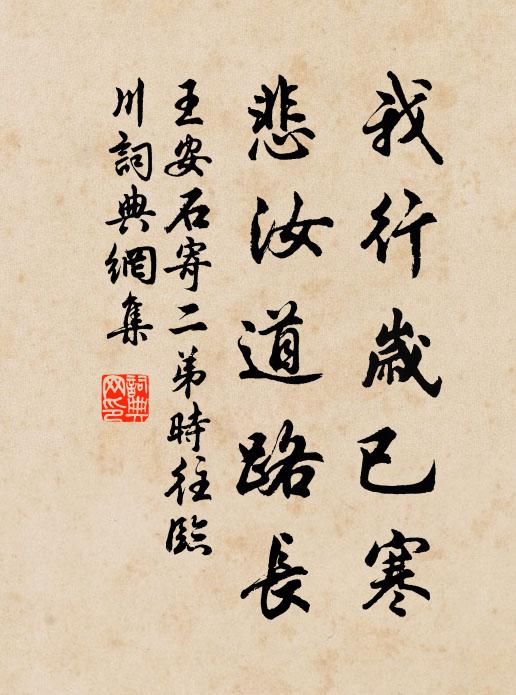 我行歲已寒
悲汝道路長
王安石寄二弟時往臨
川詞典網集
詞典
网印